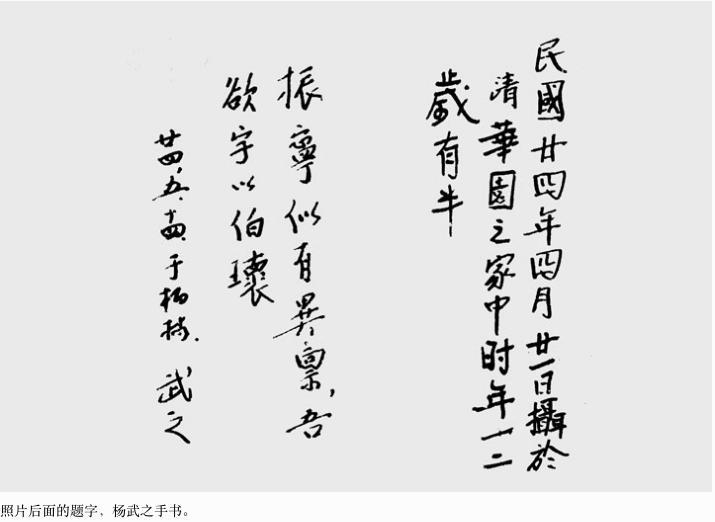 民國廿四年四月廿一日攝於
清華園之家中时年一二
歲有半
振寧似有異禀，吾
欲字以伯瓌
廿四、五、十四、于柏林. 武之
照片后面的题字，杨武之手书。